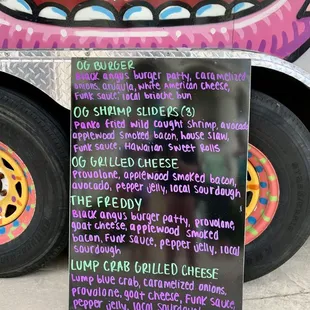 OG BURGER
Black angus burger patty, caramelized
onions, arugula, white American cheese,
Funk sauce, local brioche bun
OG SHRIMP SLIDERS (3)
Panko fried wild caught shrimp, avocado
applewood smoked bacon, house slaw,
Funk sauce, Hawaiian Sweet Rolls
OG GRILLED CHEESE
Provolone, applewood smoked bacon,
avocado, pepper jelly, local sourdough
THE FREDDY
Black angus burger patty, provolone,
goat cheese, applewood smoked
bacon, Funk sauce, pepper jelly, local
sourdough
LUMP CRAB GRILLED CHEESE
Lump blue crab, caramelized onions,
provolone, goat cheese, Funk sauce,
pepper jelly, local sourdough